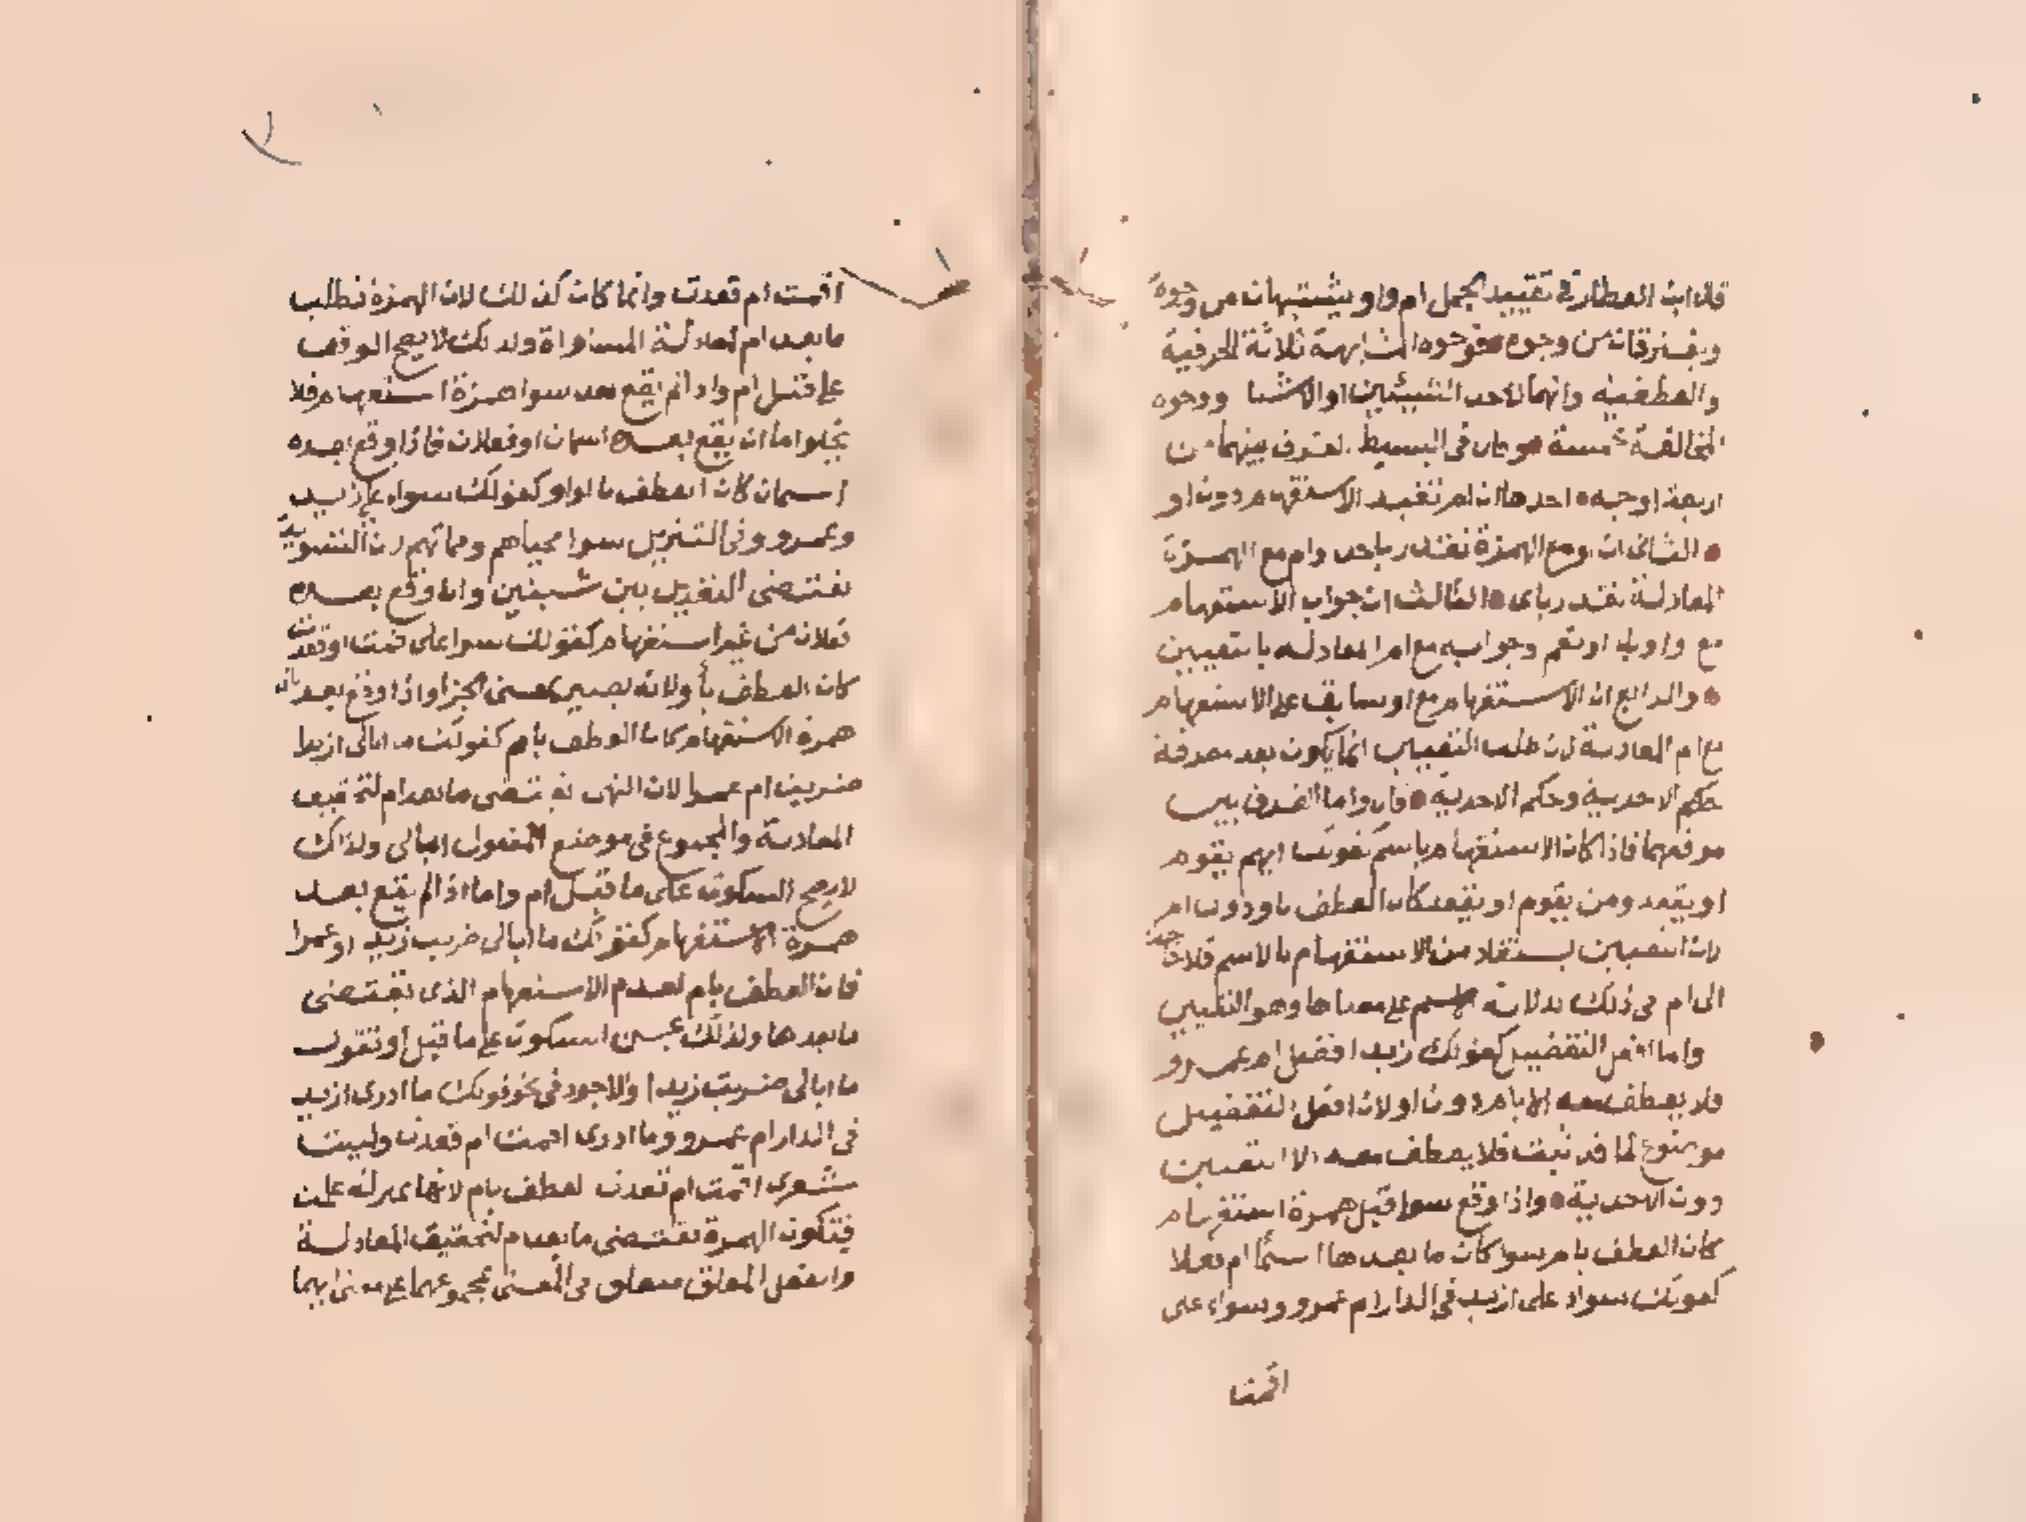 قال ابن العطار في تقييد الجمل ام واو يشتبهان من وجوه
ويفترقان من وجوه فوجوه المشابهة ثلاثة الحرفية
والعطفية وانهما لاحد الشيئين او الاشيا ووجوه
المخالفة خمسة وقال في البسيط الفرق بينهما من
اربعة اوجه احدها ان ام تفيد الاستفهام دون او
الثاني ان او مع الهمزة تقدر باحد وام مع الهمزة
المعادلة تقدر باي الثالث ان جواب الاستفهام
مع او بلا او نعم وجوابه مع ام المعادلة بالتعيين
والرابع ان الاستفهام مع او سابق على الاستفهام
مع ام المعادلة لان طلب التعيين انما يكون بعد معرفة
حكم الاحدية وحكم الاحدية قال واما الفرق بين
موقعهما فاذا كان الاستفهام باسم كقولك ايهم يقوم
او يقعد ومن يقوم او يقعد كان العطف باو دون ام
لان التعيين يستفاد من الاستفهام بالاسم فلا حاجة
الى ام في ذلك بدلالة الاسم على معناها وهو التعيين
واما افعل التفضيل كقولك زيد افضل ام عمرو
فلا يعطف معه الا بام دون او لان افعل التفضيل
موضوع لما قد ثبت فلا يعطف معه الا التعيين
دون الاحدية واذا وقع سوا قبل همزة استفهام
كان العطف بام سوا كان ما بعدها اسما ام فعلا
كقولك سواء على ازيد في الدار ام عمرو وسواء على
اقمت
اقمت ام قعدت وانما كان كذلك لان الهمزة تطلب
ما بعد ام لمعادلة المساواة ولذلك لا يصح الوقف
على قبل ام واذا لم يقع بعد سوا همزة استفهام فلا
يخلو اما ان يقع بعده اسمان او فعلان فاذا وقع بعده
اسمان كان العطف بالواو كقولك سواء على زيد
وعمرو وفي التنزيل سوا محياهم ومماتهم لان التسوية
تقتضي التعديل بين شيئين وان وقع بعده
فعلان من غير استفهام كقولك سوا على قمت او قعدت
كان العطف باو لانه يصير بمعنى الجزا واذا وقع بعد ابالي
همزة الاستفهام كان العطف بام كقولك ما ابالي ازيدا
ضربت ام عمرا لان الهمزة تقتضي ما بعد ام لتحقيق
المعادلة والمجموع في موضع المفعول ابالي ولذلك
لا يصح السكوت على ما قبل ام واما اذا لم يقع بعد
همزة الاستفهام كقولك ما ابالي ضربت زيدا او عمرا
فان العطف بام لعدم الاستفهام الذي يقتضي
ما بعدها ولذلك يحسن السكوت على ما قبل او تقول
ما ابالي ضربت زيدا والاجود في نحو قولك ما ادري ازيد
في الدار ام عمرو وما ادري اقمت ام قعدت وليت
شعري اقمت ام قعدت العطف بام لانها بمنزلة علمت
فتكون الهمزة تقتضي ما بعد ام لتحقيق المعادلة
والفعل المعلق متعلق في المعنى بمجموعهما على معنى ايهما